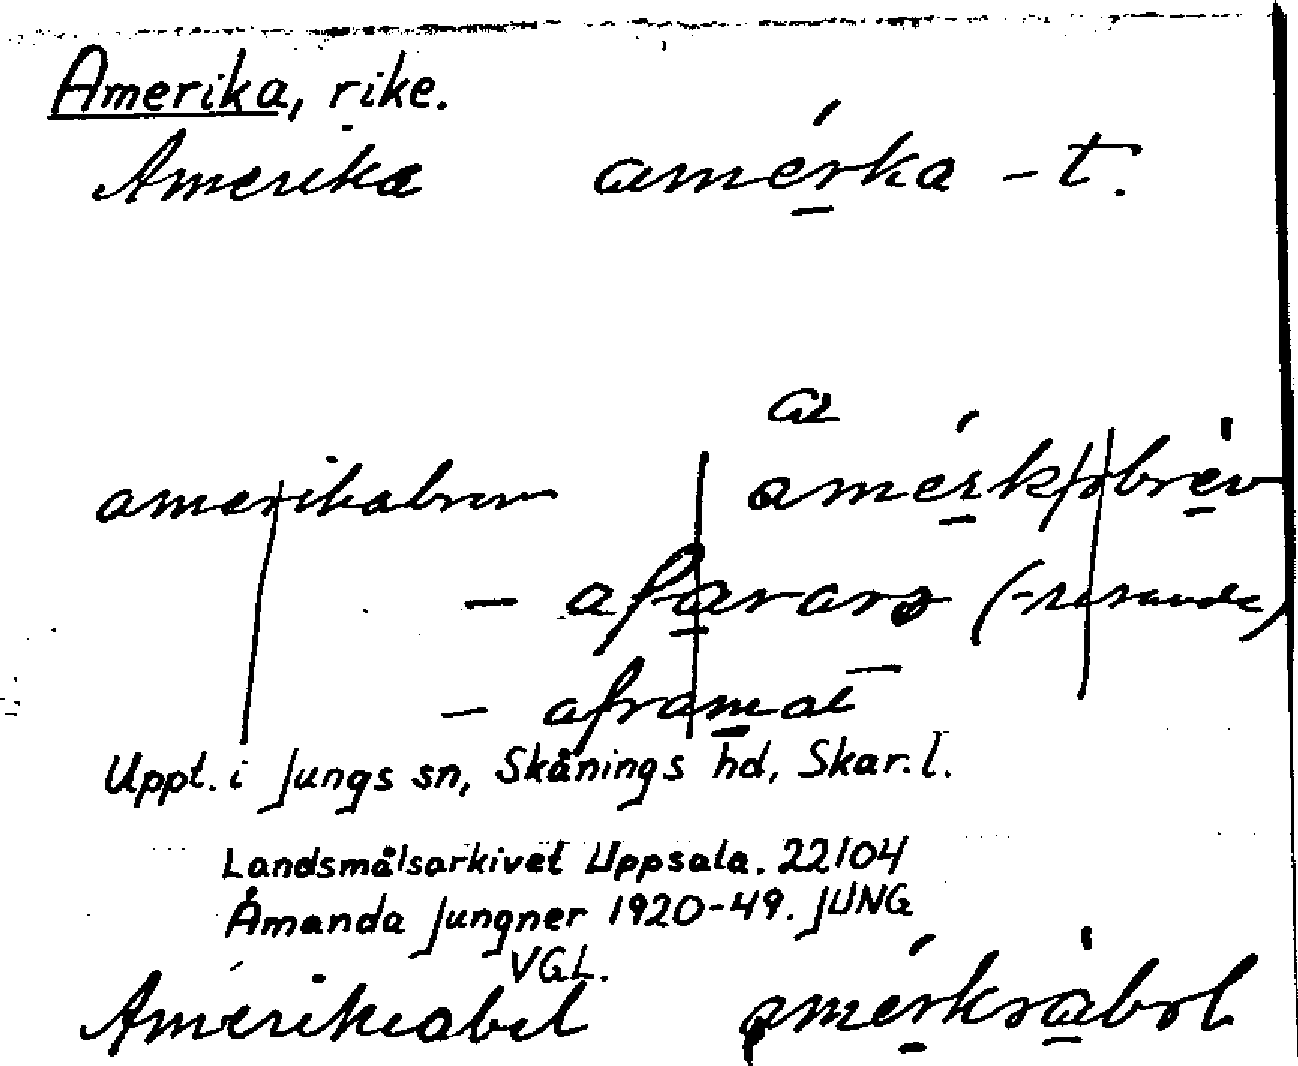 Amerika, rike.
Amerika amérka - t.
a
amerikabrev amérk/ɪbrèv
- afararɔ (-resande)
- aframat
Uppt. i Jungs sn, Skånings hd, Skar. l.
Landsmålsarkivet Uppsala. 22104
Ámanda Jungner 1920-49. JUNG
VGL.
Amerikeabil